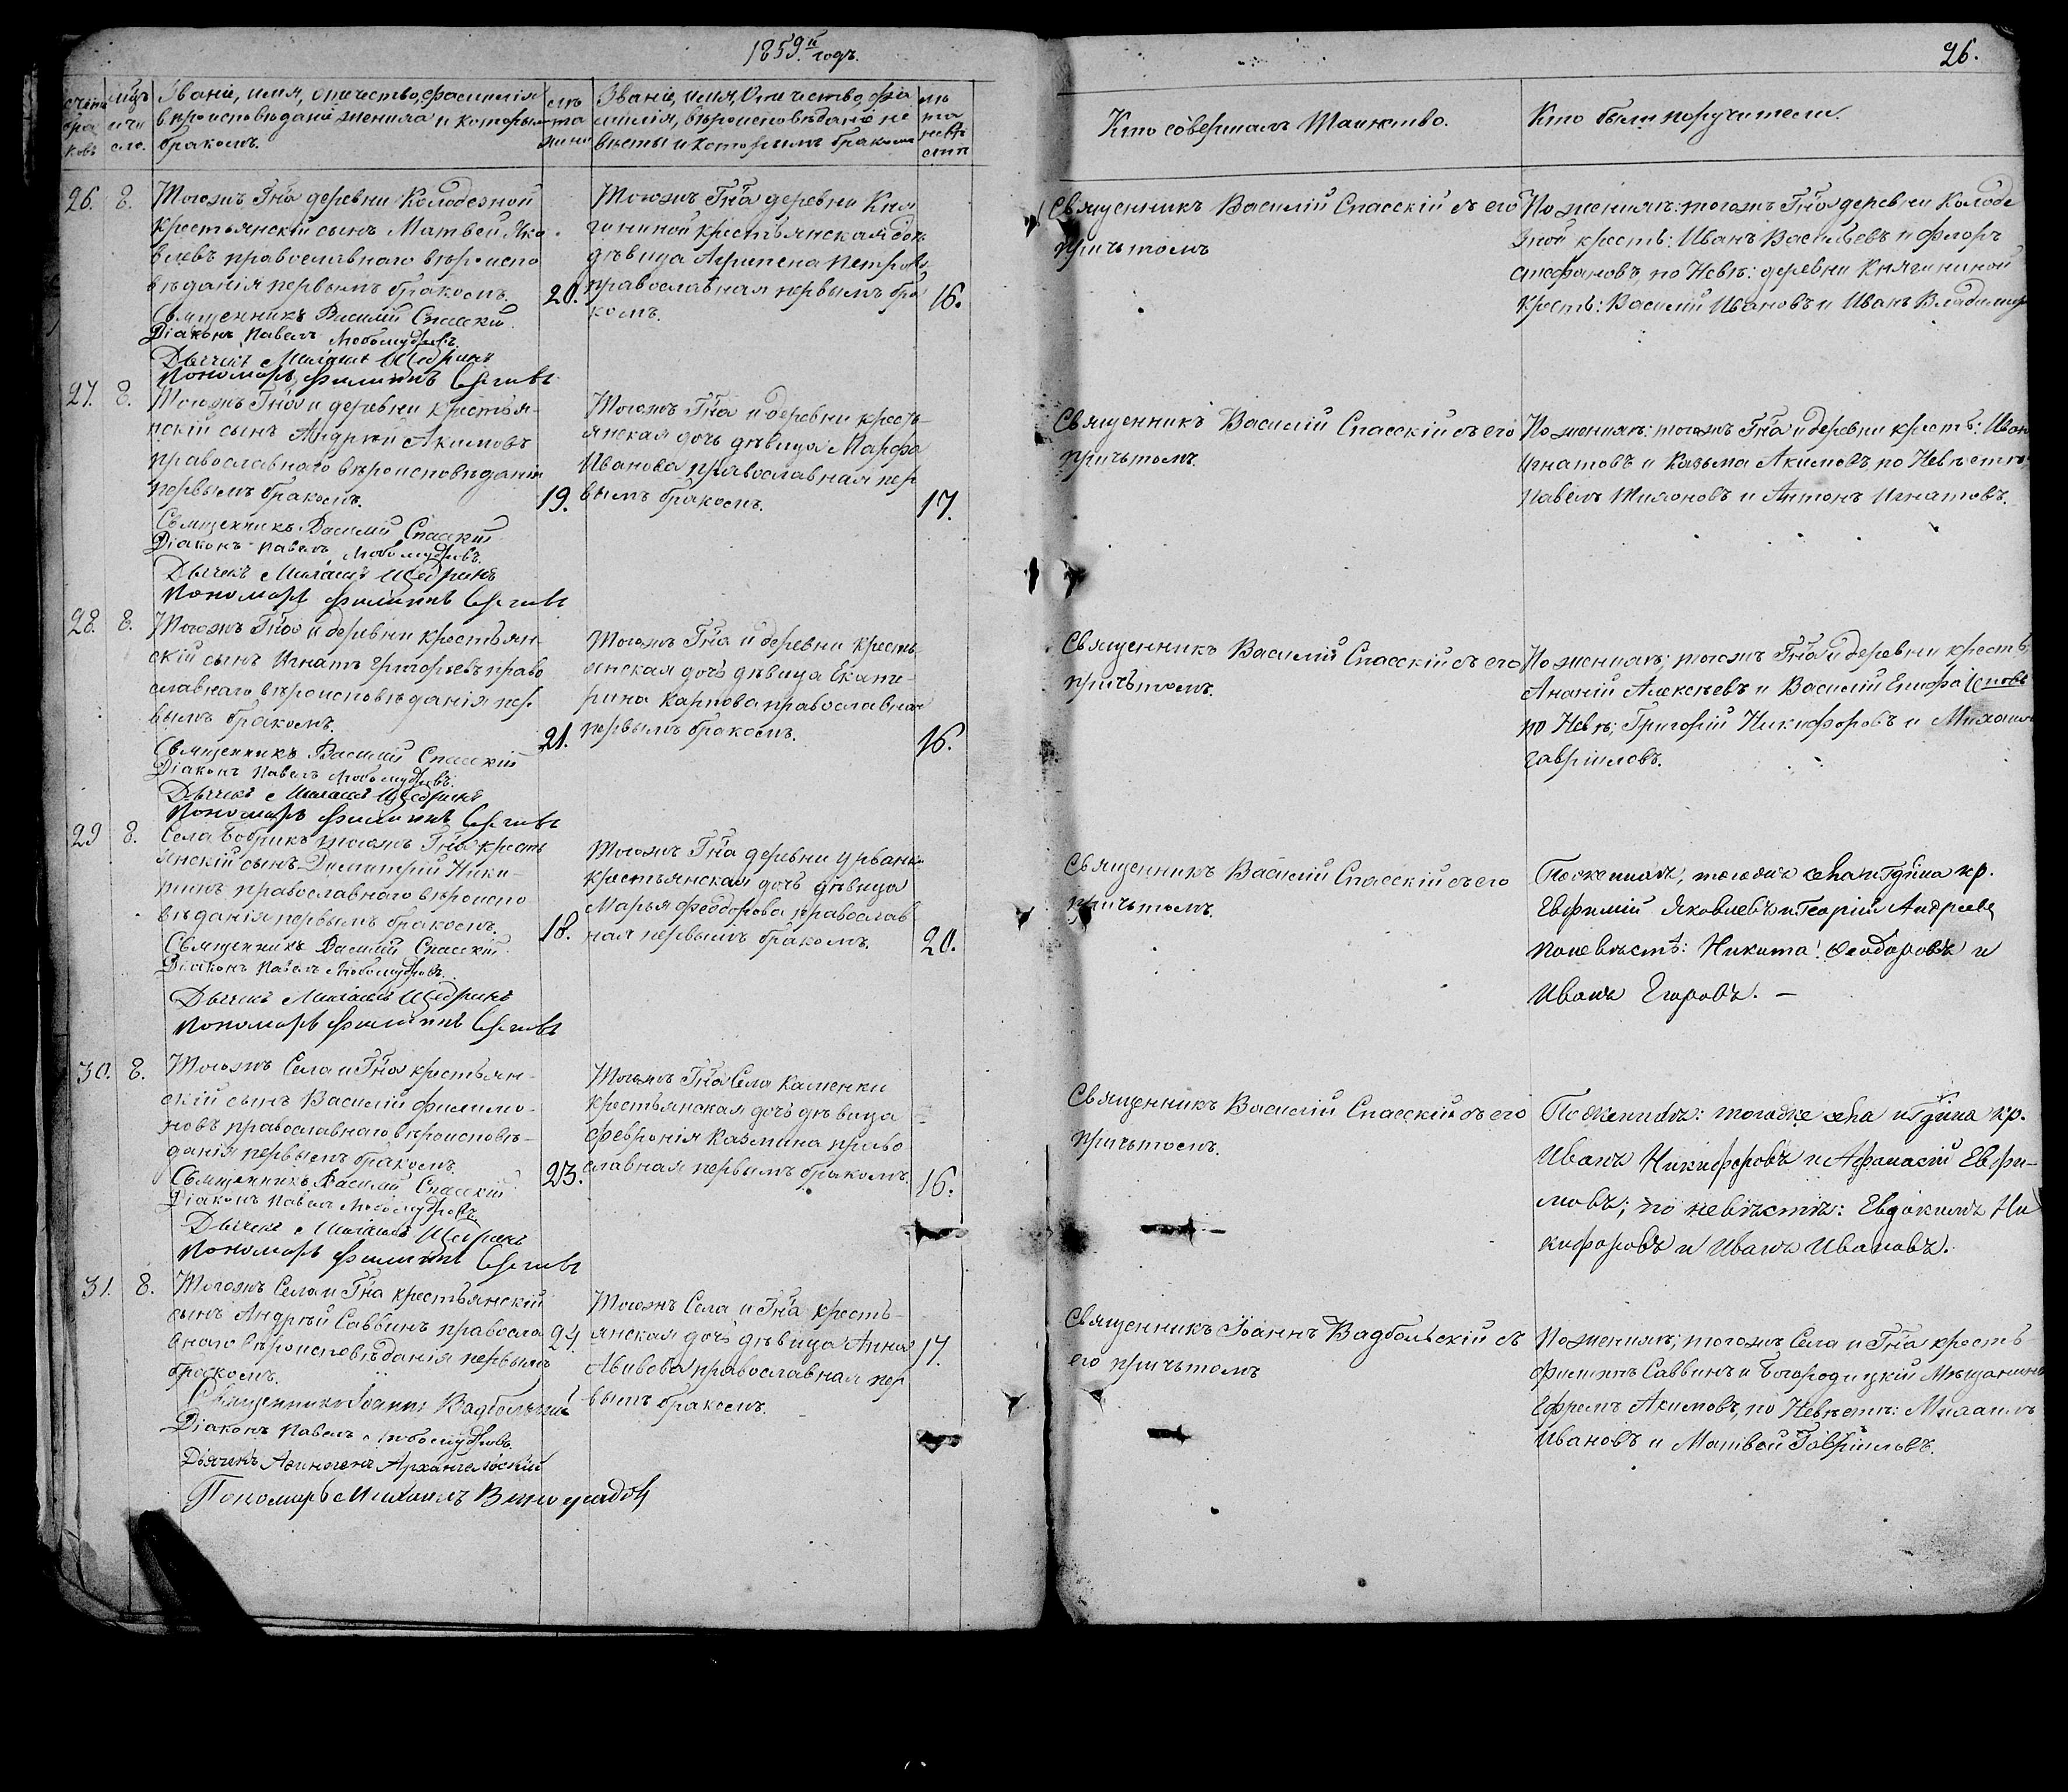 1859й годъ.
26.
счетъ браковъ
мцъ и число.
Званіе, имя, отчество, фамилія
вѣроисповѣданіе жениха и которымъ
бракомъ.
лѣта жениха
Званіе, имя, Отчество, фа
милія, вѣроисповѣданіе не
вѣсты и которымъ бракомъ
лѣта невѣсты
Кто совершалъ Таинство.
Кто были поручители.
26. 8.
Тогожъ Гна деревни Колодезной
крестьянскій сынъ Матвей Яко
влевъ православнаго вѣроиспо
вѣданія первымъ бракомъ.
20.
Священникъ Василій Спасскій.
Діаконъ Павелъ Любомудровъ.
Дьячекъ Щедринъ
Пономарь Филиппъ Сергіевъ
Тогожъ Гна деревни Кня
гининой крестьянская дочь
дѣвица Агрипена Петрова
православная первымъ бра
комъ.
16.
Священникъ Василій Спасскій съ его
причьтомъ
По женихѣ: тогожъ Гна деревни Колоде
зной кресть: Иванъ Васильевъ и Флоръ
Стефановъ, по Невѣ: деревни Княгининой
Кресть: Василій Ивановъ и Иванъ Владимир
27. 8.
Тогожъ Гна и деревни крестья-
нскій сынъ Андрей Акимовъ
православнаго вѣроисповѣданія
первымъ бракомъ.
19.
Священникъ Василій Спасскій
Діаконъ Павелъ Любомудровъ.
Дьячекъ Щедринъ
Пономарь Филиппъ Сергіевъ
Тогожъ Гна и деревни кресть-
янская дочь дѣвица Марфа
Иванова православная пер
вымъ бракомъ.
17.
Священникъ Василій Спасскій съ его
причьтомъ.
По женихѣ: тогожъ Гна и деревни кресть: Иванъ
Игнатовъ и Казьма Акимовъ по Невѣстѣ:
Павелъ и Антонъ Игнатовъ.
28. 8.
Тогожъ Гна и деревни крестьян-
скій сынъ Игнатъ Григорьевъ право
славнаго вѣроисповѣданія пер
вымъ бракомъ.
21.
Священникъ Василій Спасскій
Діаконъ Павелъ Любомудровъ.
Дьячекъ Щедринъ
Пономарь Филиппъ Сергіевъ
Тогожъ Гна и деревни кресть
янская дочь дѣвица Екате-
рина Карпова православная
первымъ бракомъ.
16.
Священникъ Василій Спасскій съ его
причьтомъ.
По женихѣ; тогожъ Гна и деревни кресть:
Ананій Алексѣевъ и Василій
по Невѣ; Григорій Никифоровъ и Михаилъ
Гавриловъ.
29 8.
Села Бобрикъ тогожъ Гна кресть
янскій сынъ Димитрій Ники-
тинъ православнаго вѣроиспо-
вѣданія первымъ бракомъ.
18.
Священникъ Василій Спасскій
Діаконъ Павелъ Любомудровъ.
Дьячекъ Щедринъ
Пономарь Филиппъ Сергіевъ
Тогожъ Гна деревни Урванки
крестьянская дочь дѣвица
Марья Феодорова православ
ная первымъ бракомъ.
20.
Священникъ Василій Спасскій съ его
причьтомъ.
По женихѣ; тогожъ села и Гдина кр.
Евфимій Яковлевъ и Георгій Андреевъ
по невѣстѣ: Никита Ѳеодоровъ и
Иванъ Егоровъ. —
30. 8.
Тогожъ Села и Гна крестьян-
скій сынъ Василій Филимо-
новъ православнаго вѣроисповѣ-
данія первымъ бракомъ.
23.
Священникъ Василій Спасскій
Діаконъ Павелъ Любомудровъ.
Дьячекъ Щедринъ
Пономарь Филиппъ Сергіевъ
Тогожъ Гна Села Каменки
крестьянская дочь дѣвица
Февронія Казмина право
славная первымъ бракомъ.
16.
Священникъ Василій Спасскій съ его
причьтомъ.
По женихѣ: тогоже села и Гдина кр.
Иванъ Никифоровъ и Афанасій Евфи-
мовъ; по невѣстѣ: Евдокимъ Ни
кифоровъ и Иванъ Ивановъ.
31. 8.
Тогожъ Села и Гна крестьянскій
сынъ Андрей Саввинъ правосла
внаго вѣроисповѣданія первымъ
бракомъ.
24.
Священникъ Іоаннъ Вадбольскій
Діаконъ Павелъ Любомудровъ.
Дьячекъ Афиногенъ Архангельскій
Пономарь Михаилъ Виноградовъ
Тогожъ Села и Гна кресть-
янская дочь дѣвица Анна
Авивова православная пер
вымъ бракомъ.
17.
Священникъ Іоаннъ Вадбольскій съ
его причьтомъ
По женихѣ; тогожъ Села и Гна кресть-
Филиппъ Саввинъ и Богородицкій Мѣщанинъ
Ефремъ Акимовъ, по Невѣстѣ: Михаилъ
Ивановъ и Матвей Гавриловъ.